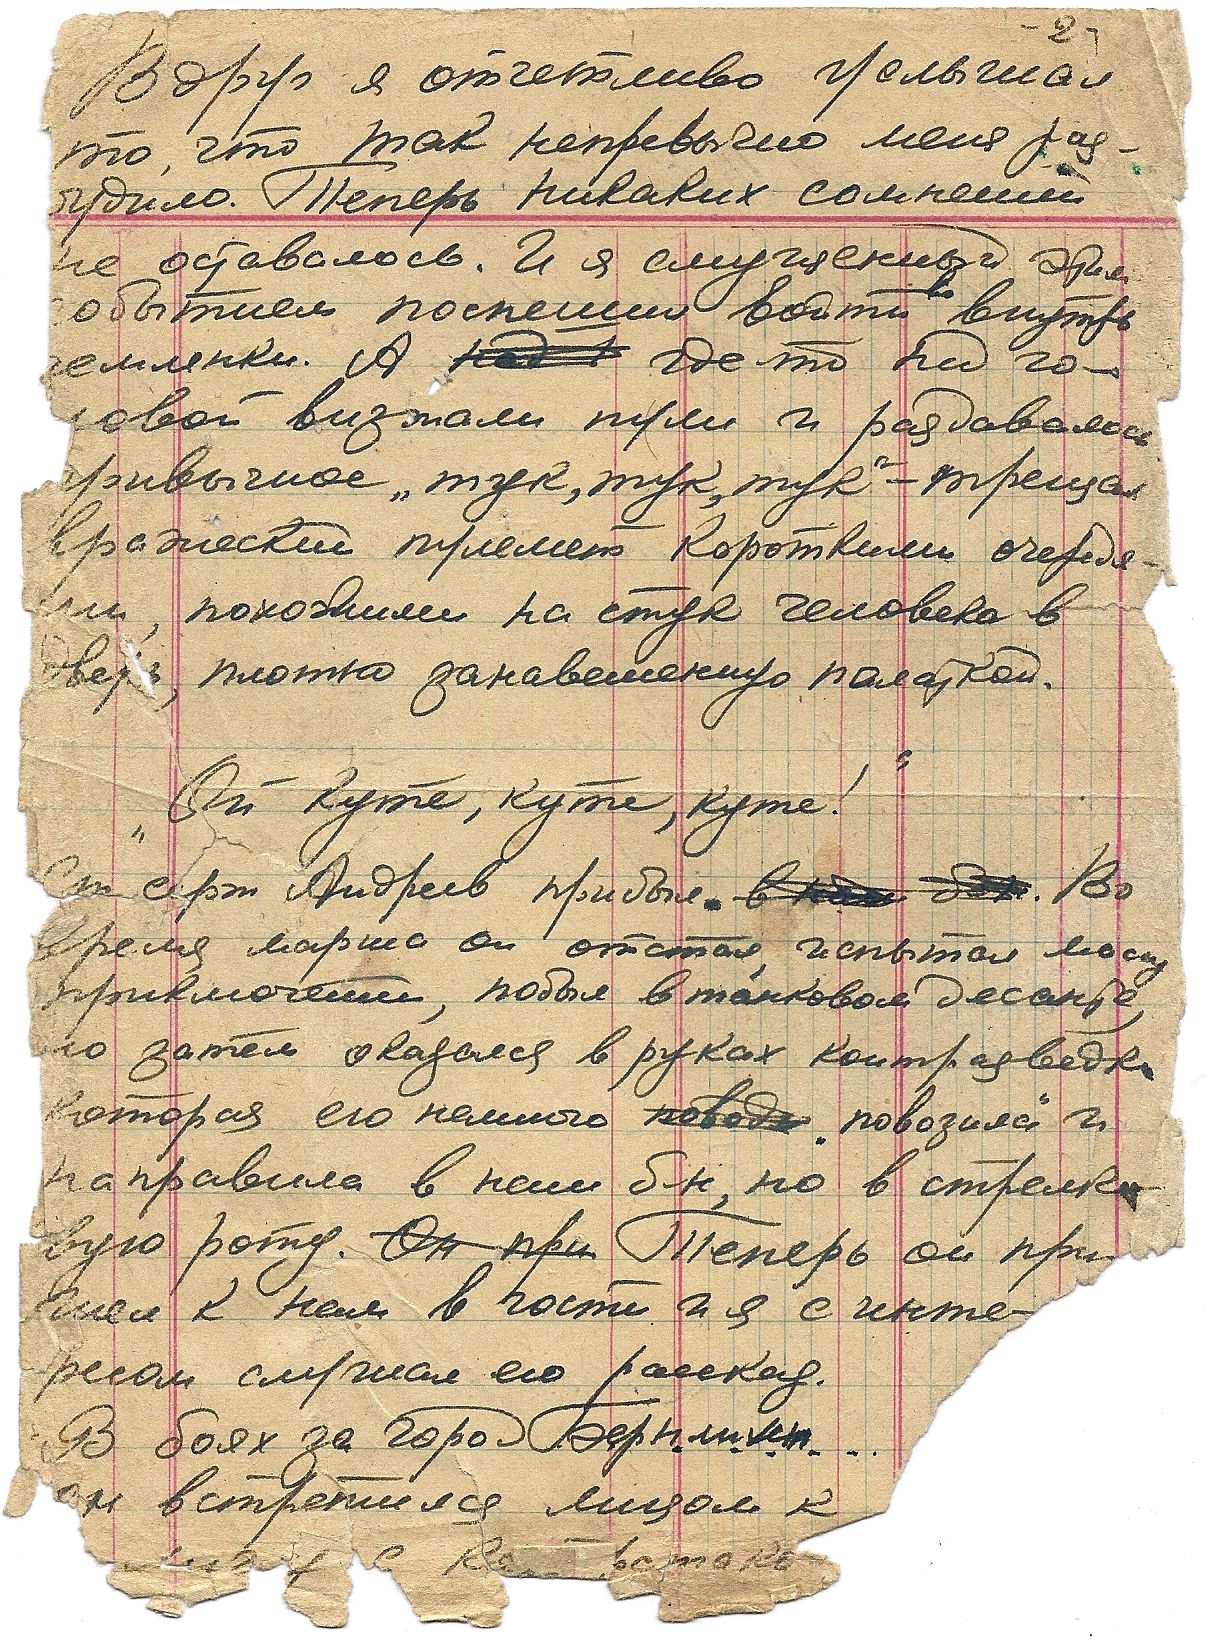 -2-
Вдруг я отчетливо услышал
то, что так непревычно меня раз-
будило. Теперь никаких сомнений
не оставалось. И я смущенный этим
событием поспешил войти во внутрь
землянки. А где то над го-
ловой визжали пули и раздавалось
привычное „тук, тук, тук" - трещал
вражеский пулемет короткими очередя-
ми, похожими на стук человека в
дверь, плотно занавешенную палаткой.
„Ой куте, куте, куте!"
Ст серж Андреев прибыл. Во
время марша он отстал, испытал массу
приключений, побыл в танковом десанте,
но затем оказался в руках контрразведки
которая его немного „повозила" и
направила в наш б-н, но в стрелко
вую роту. Он при Теперь он при
шел к нам в гости и я с инте-
ресом слушал его рассказ.
В боях за город Берлин...
он встретился лицом к
лицу с